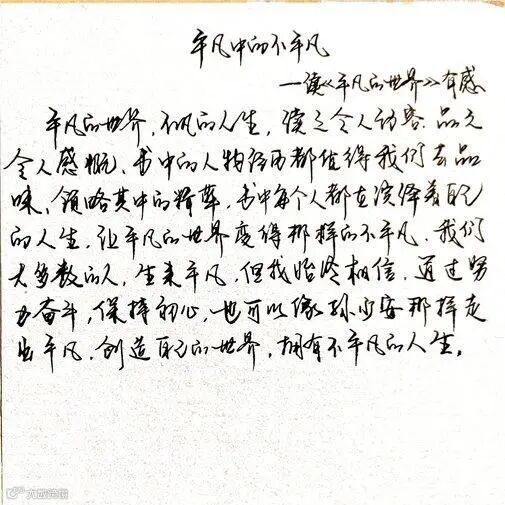 平凡中的不平凡
—读《平凡的世界》有感
平凡的世界,不凡的人生,读之令人动容,品之
令人感慨,书中的人物经历都值得我们去品
味、领略其中的精华,书中每个人都在演绎着自己
的人生,让平凡的世界变得那样的不平凡,我们
大多数的人,生来平凡,但我始终相信,通过努
力奋斗,保持初心,也可以像孙少安那样走
出平凡,创造自己的世界,拥有不平凡的人生。